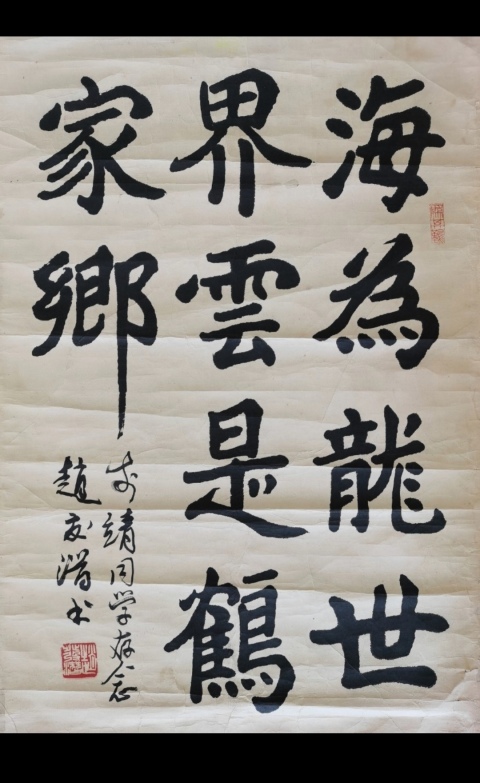 海為龍世
界雲是鶴
家鄉
靖同学存念
趙友澄书